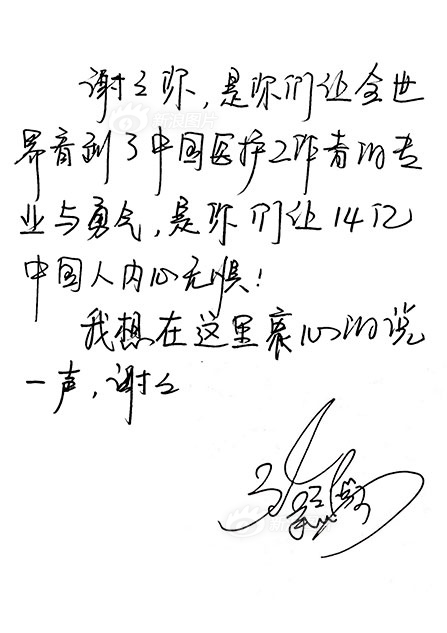 谢々你，是你们让全世
界看到了中国医护工作者的专
业与勇气，是你们让14亿
中国人内心无惧！
我想在这里衷心的说
一声，谢々